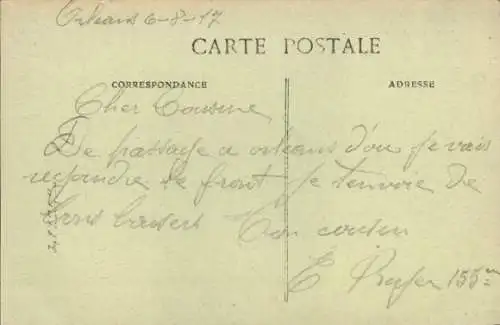 Orléans 6-8-17
CARTE POSTALE
CORRESPONDANCE
ADRESSE
Cher Cousine
De passage a orleans d'ou je vais
rejoindre le front je t'envoie de
bons baisers Ton cousin
E 155